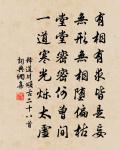 有相有求皆是妄
無形無相墮偏枯
堂堂密密何曾間
一道寒光爍太虛
釋道川頌古二十八首
詞典網集